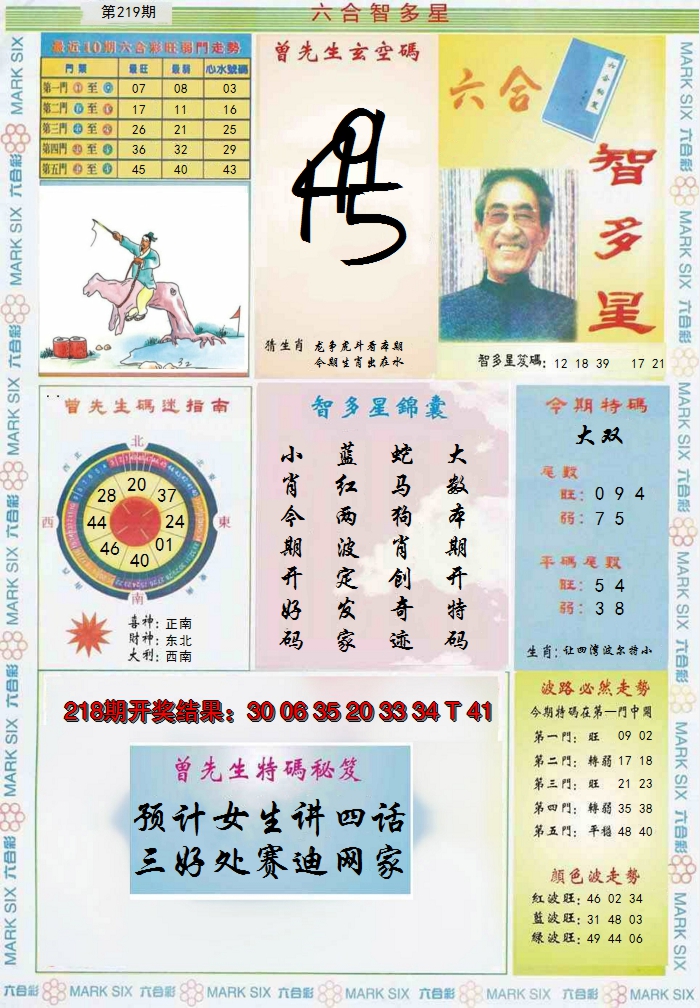 第219期
六合智多星
最近10期六合彩旺弱門走勢
門類 最旺 最弱 心水號碼
第一門 至 07 08 03
第二門 至 17 11 16
第三門 至 26 21 25
第四門 至 36 32 29
第五門 至 45 40 43
曾先生玄空碼
猜生肖 龙争虎斗看本期
今期生肖出在水
六合
智多星
智多星笈碼: 12 18 39 17 21
曾先生碼迷指南
北
西
東
南
20
37
24
01
40
46
44
28
喜神: 正南
財神: 东北
大利: 西南
智多星錦囊
大数本期开特码
蛇马狗肖创奇迹
蓝红两波定发家
小肖今期开好码
今期特碼
大双
尾數
旺: 0 9 4
弱: 7 5
平碼尾數
旺: 5 4
弱: 3 8
生肖: 让四湾波尔特小
218期开奖结果: 30 06 35 20 33 34 T 41
曾先生特碼秘笈
预计女生讲四话
三好处赛迪网家
波路必然走勢
今期特碼在第一門中開
第一門: 旺 09 02
第二門: 轉弱 17 18
第三門: 旺 21 23
第四門: 轉弱 35 38
第五門: 平穩 48 40
顏色波走勢
紅波旺: 46 02 34
藍波旺: 31 48 03
綠波旺: 49 44 06
MARK SIX 六合彩